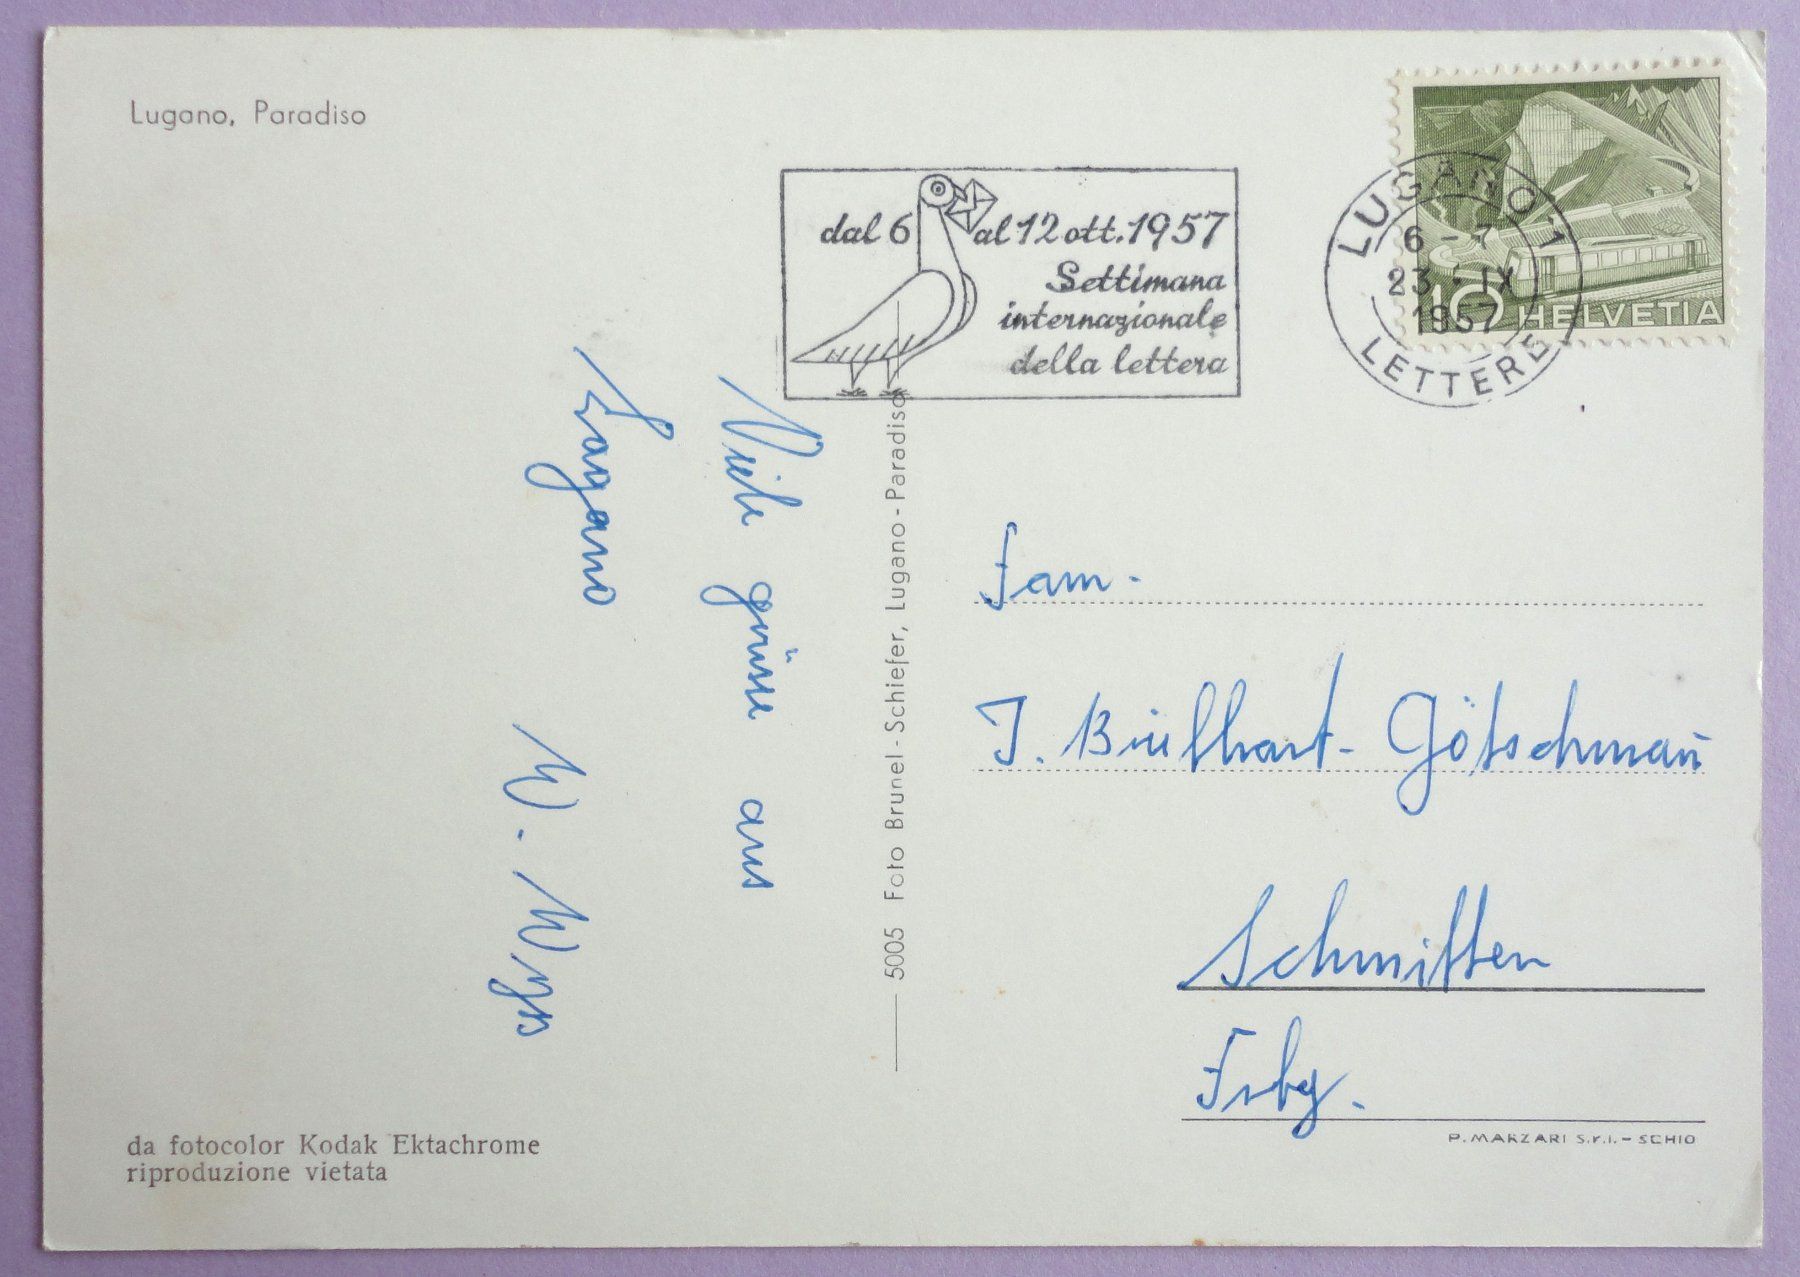 Lugano, Paradiso
dal 6 al 12 ott. 1957
Settimana
internazionale
della lettera
LUGANO 1
6-7
23. IX
1957
LETTERE
10 HELVETIA
Viele grüsse aus
Lugano
W. Wyss
5005 Foto Brunel-Schiefer, Lugano-Paradiso
Fam.
J. Brülhart-Götschmañ
Schmitten
Frbg.
da fotocolor Kodak Ektachrome
riproduzione vietata
P. MARZARI S.r.l. - SCHIO